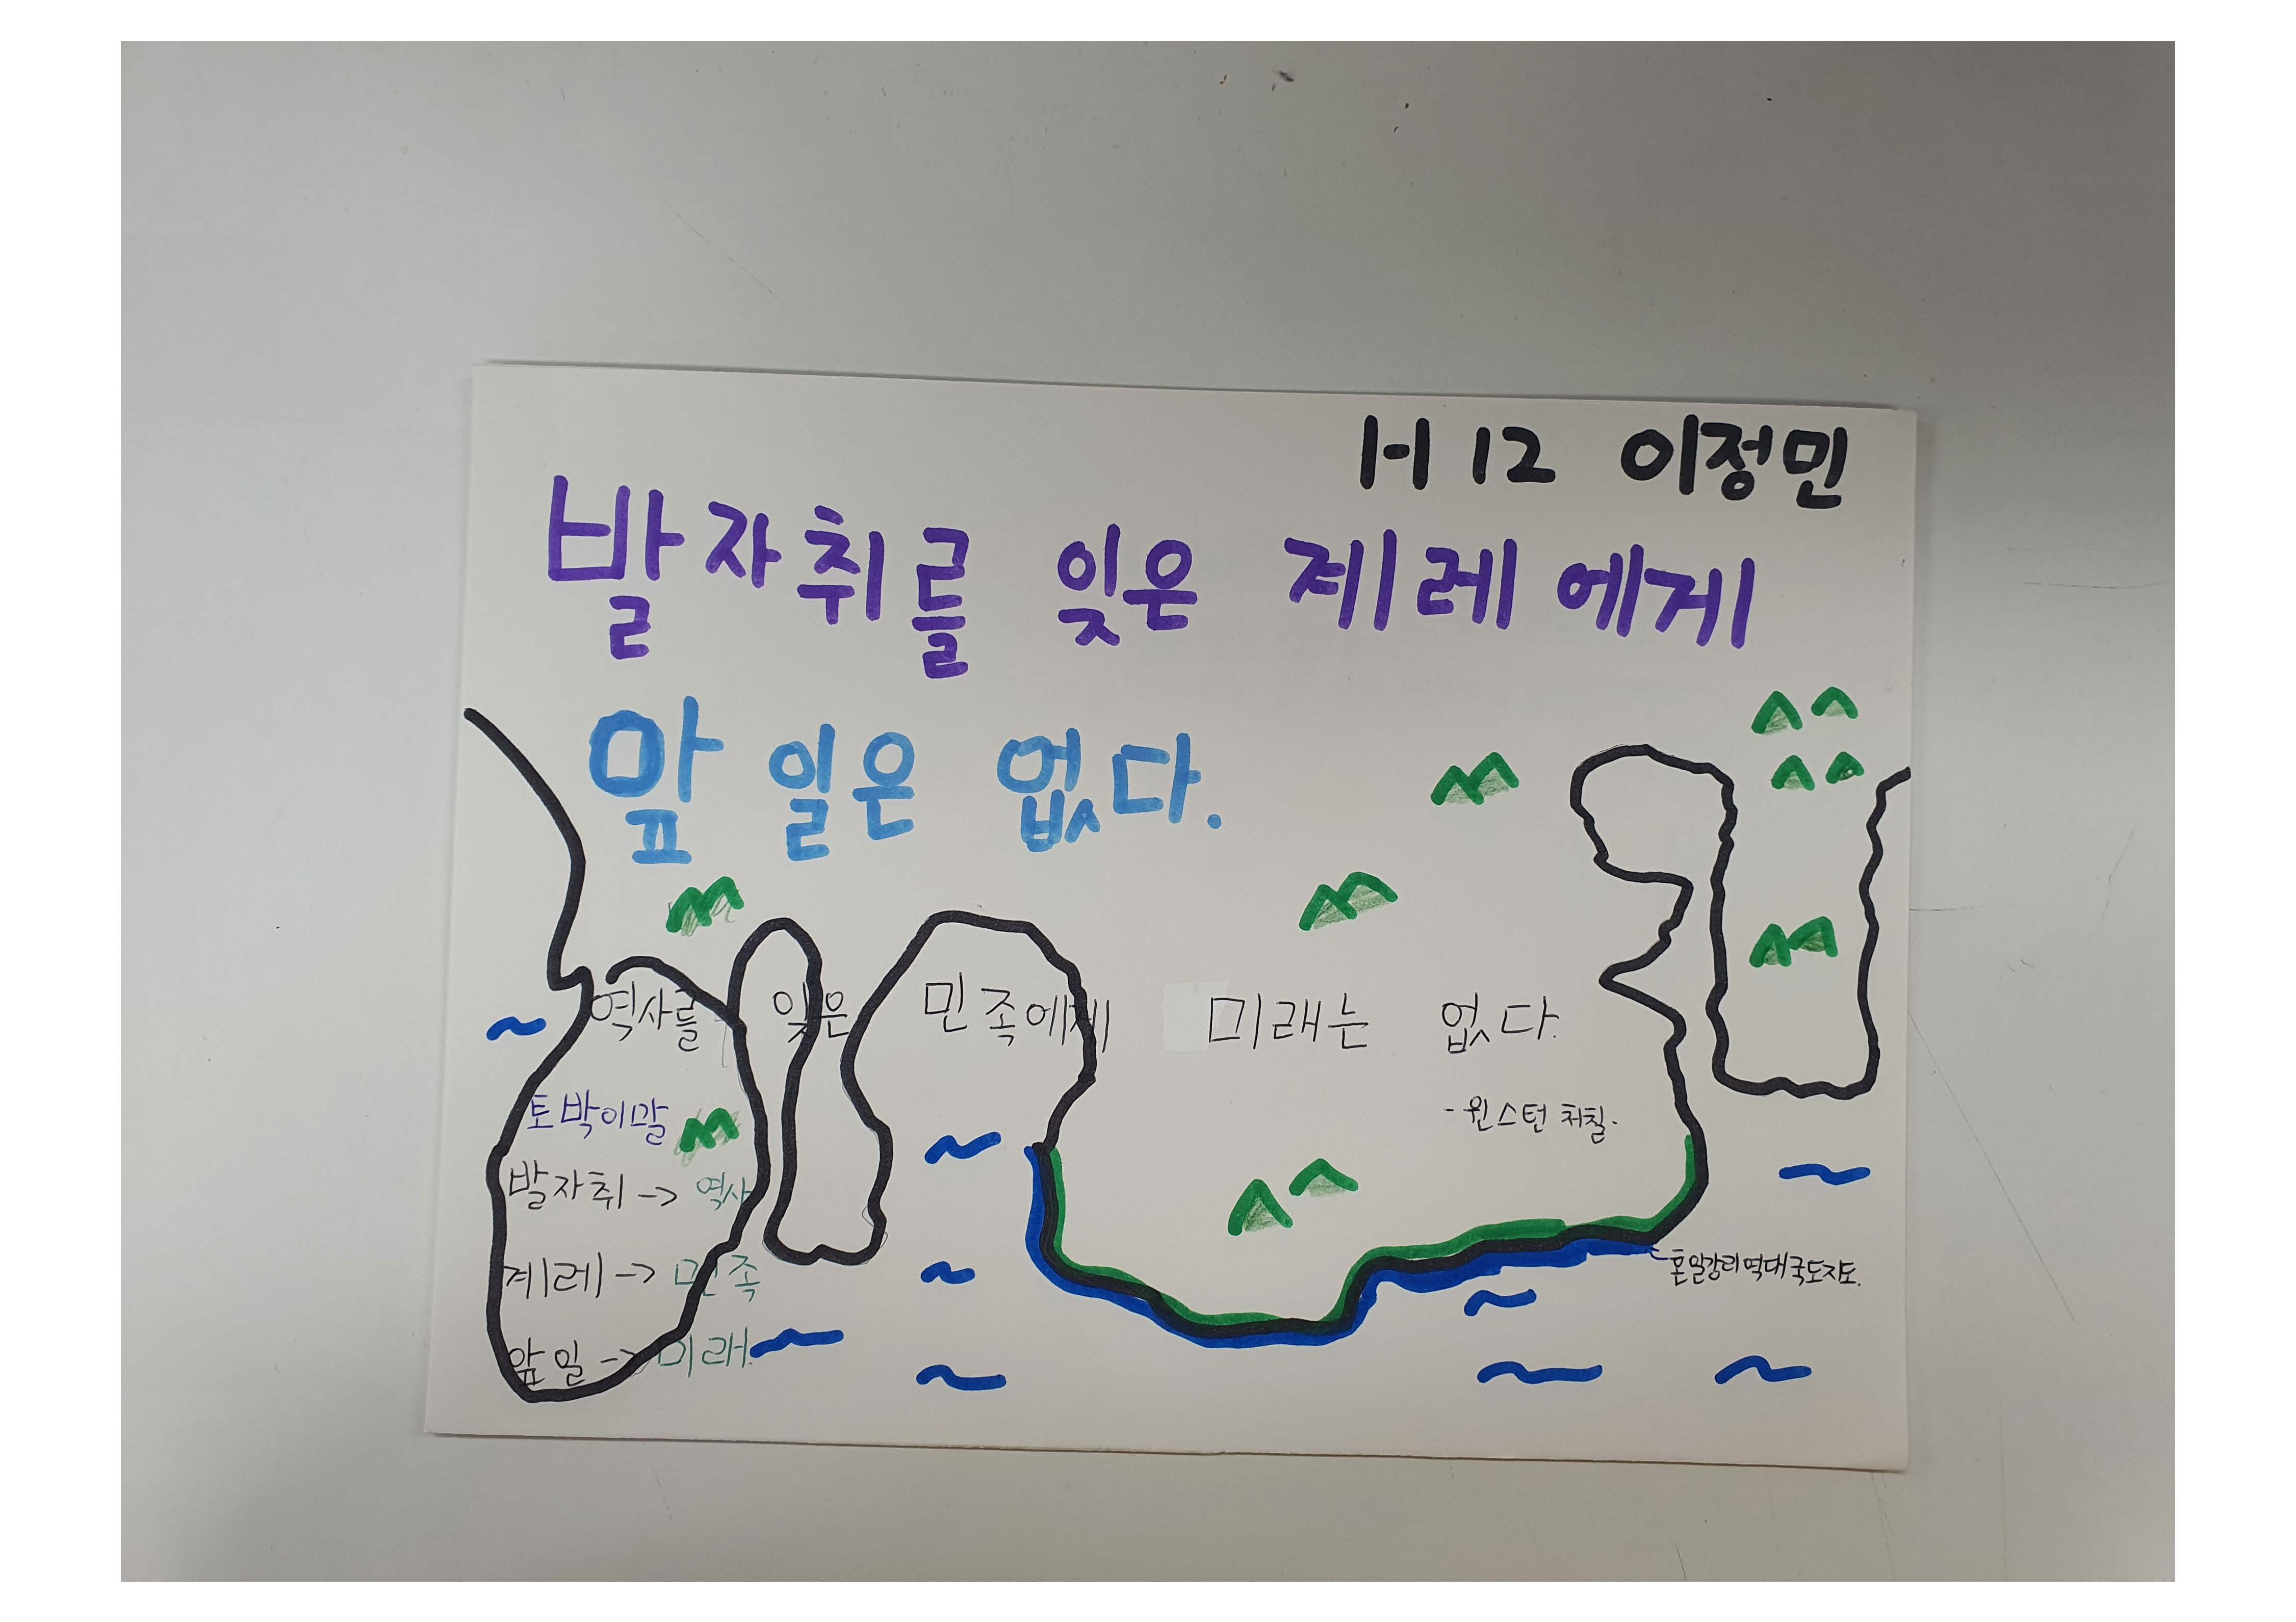 1-1 12 이정민
발자취를 잊은 계레에게
앞일은 없다.
역사를 잊은 민족에게 미래는 없다.
-윈스턴 처칠-
토박이말
발자취 -> 역사
계레 -> 민족
앞일 -> 미래.
혼일강리역대국도지도.